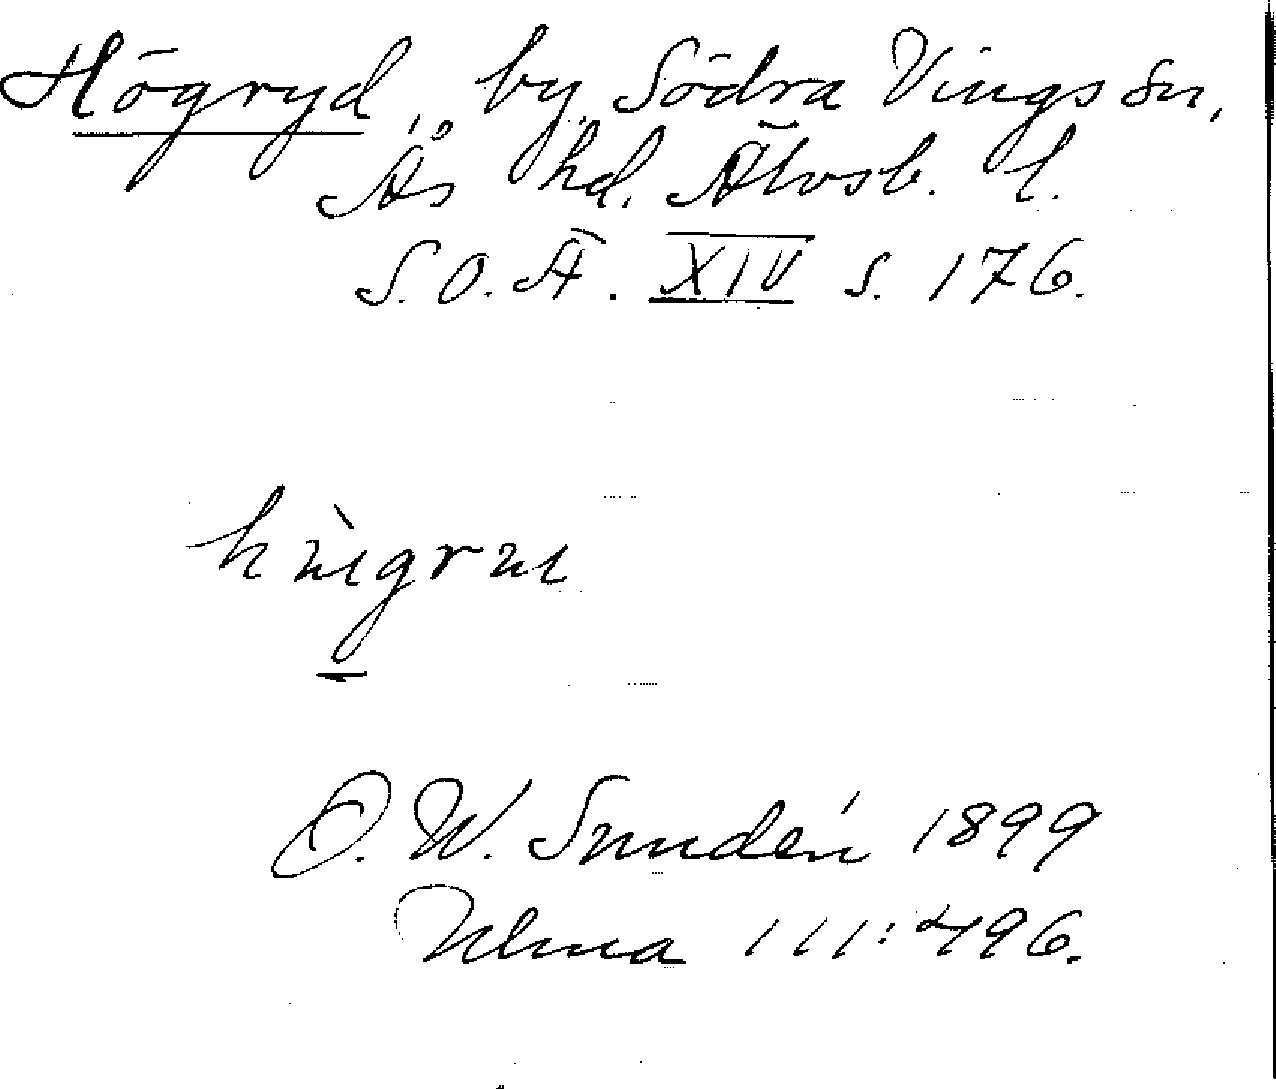 Högryd, by, Södra Vings sn,
Ås hd. Älvsb. l.
S.O.Ä. XIV s. 176.
O.W. Sundén 1899
Ulma 111:496.